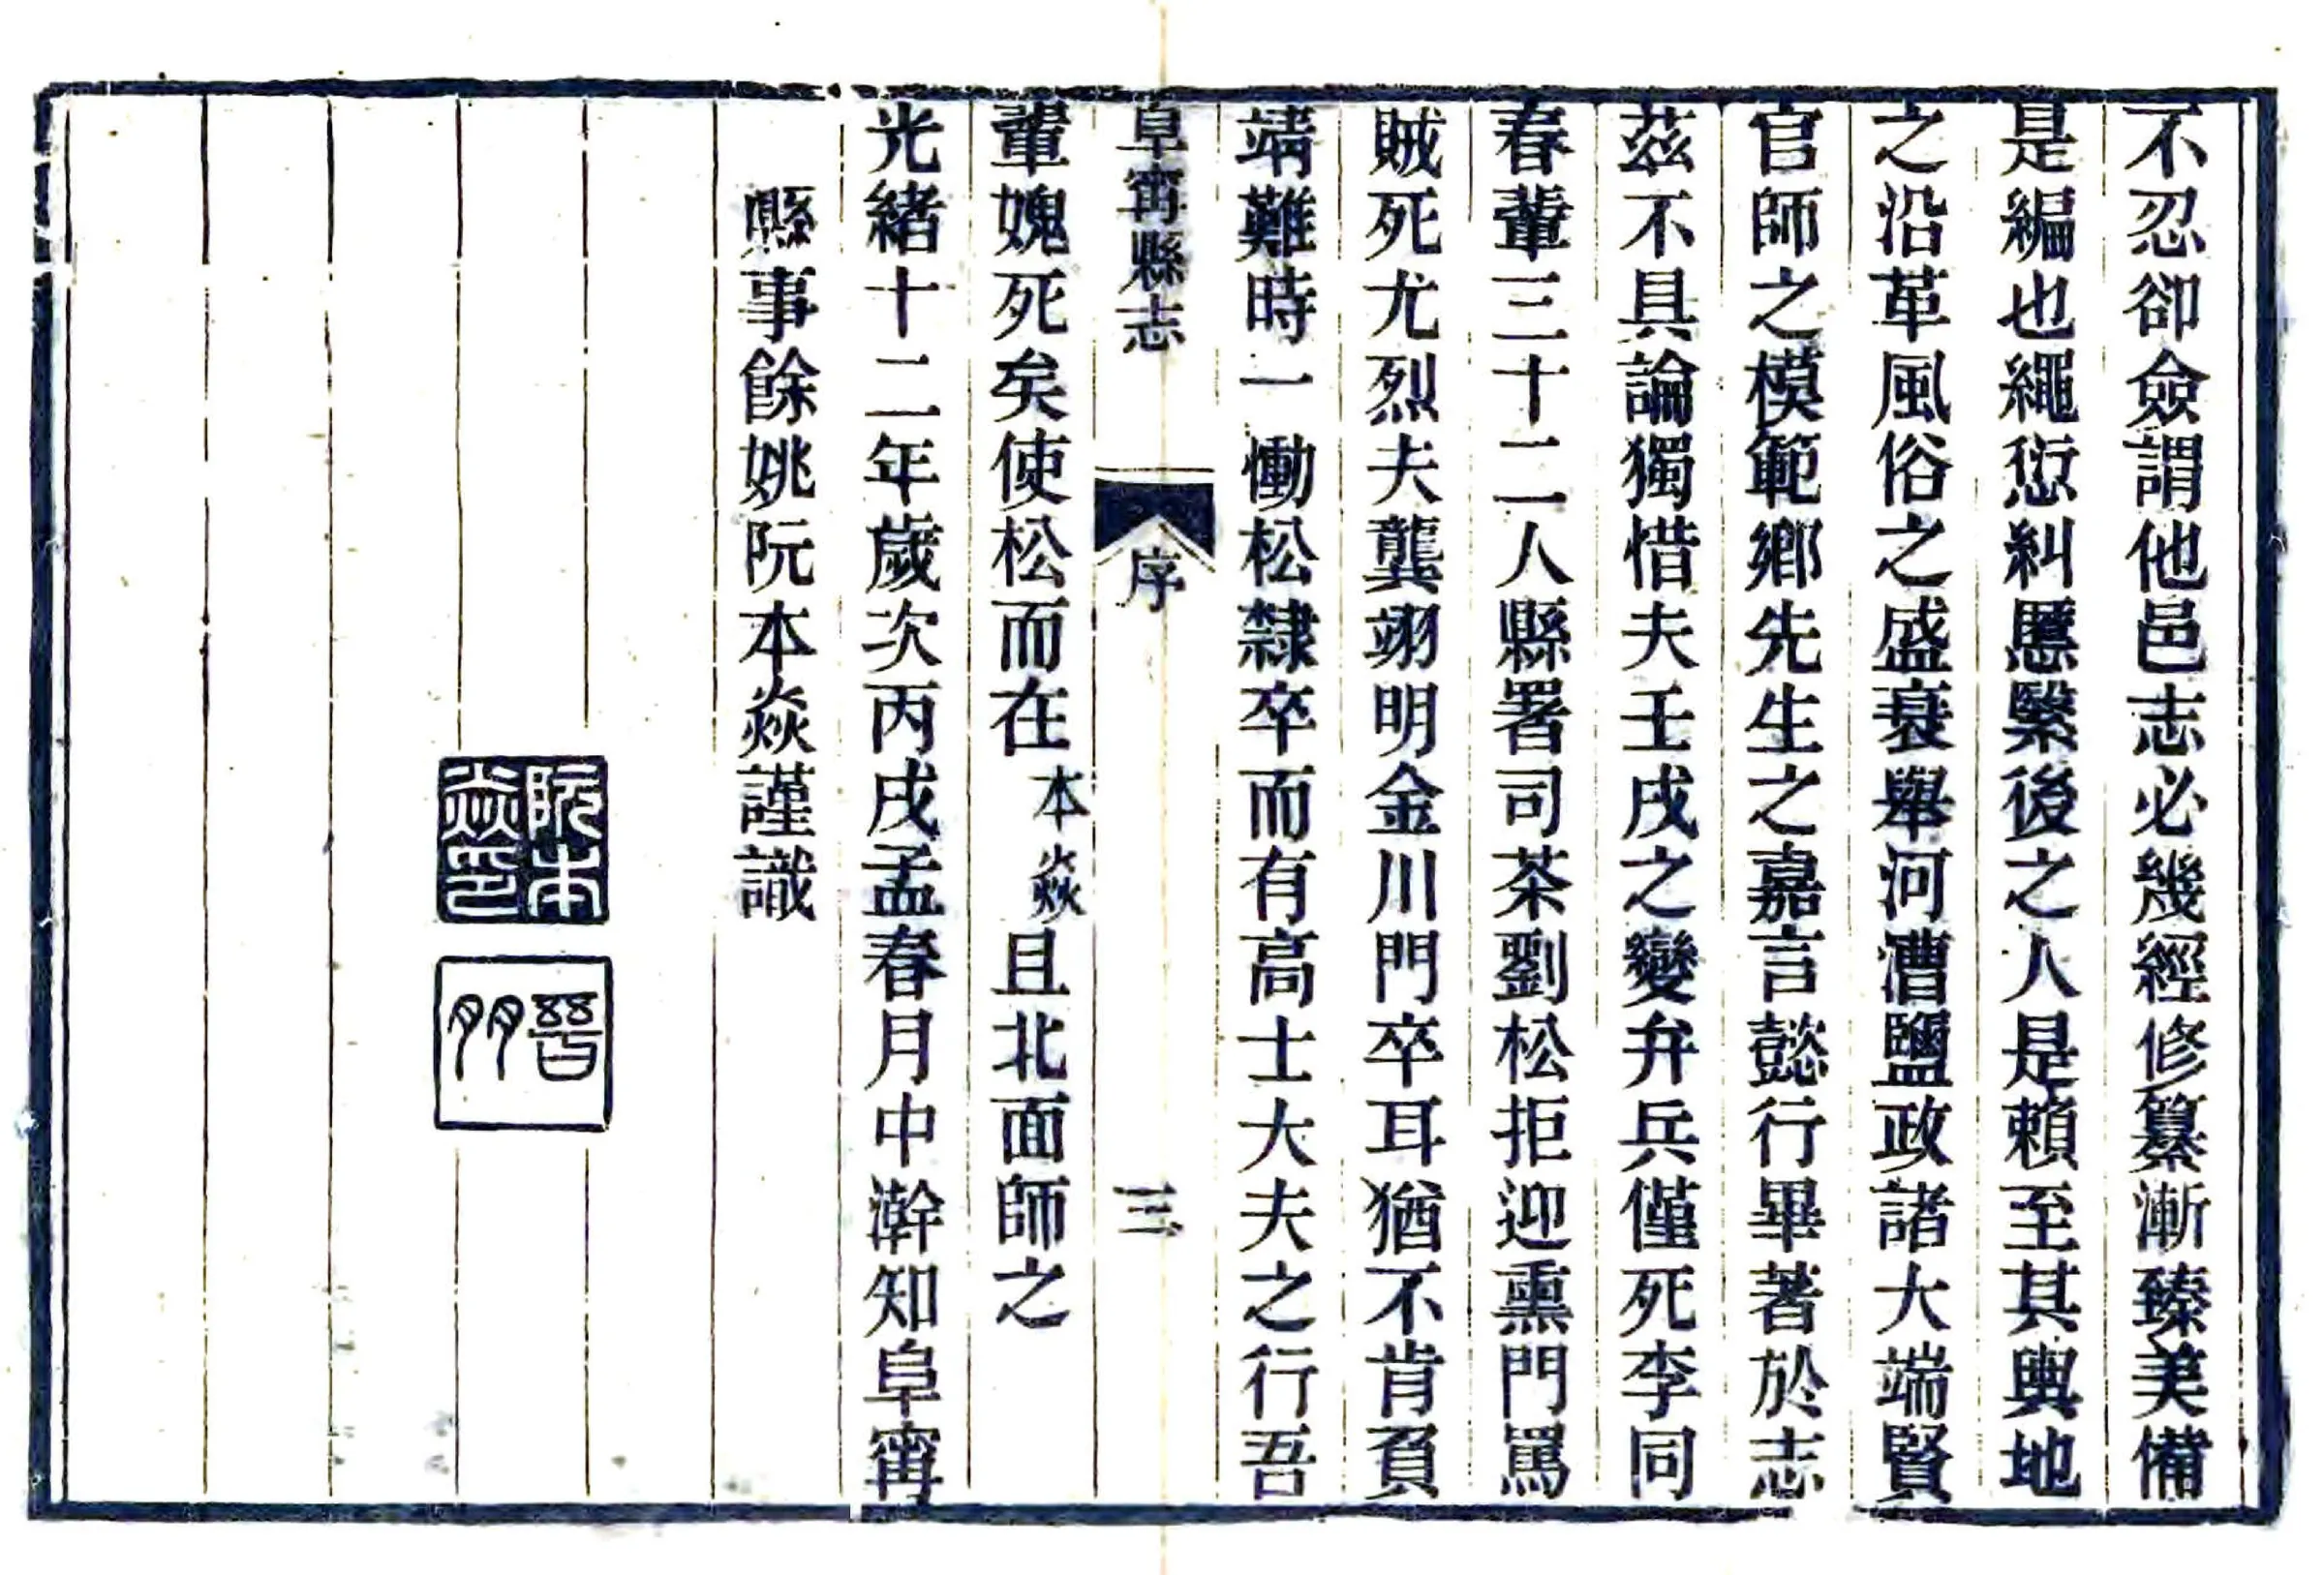 不忍卻僉謂他邑志必幾經修纂漸臻美備
是編也繩愆糾慝繄後之人是賴至其輿地
之沿革風俗之盛衰舉河漕鹽政諸大端賢
官師之模範鄉先生之嘉言懿行畢著於志
茲不具論獨惜夫壬戌之變弁兵僅死李同
春輩三十二人縣署司茶劉松拒迎熏門罵
賊死尤烈夫龔翊明金川門卒耳猶不肯負
靖難時一慟松隸卒而有高士大夫之行吾
阜甯縣志 序 三
輩媿死矣使松而在本焱且北面師之
光緒十二年歲次丙戌孟春月中澣知阜甯
縣事餘姚阮本焱謹識
阮本焱印
晉朋